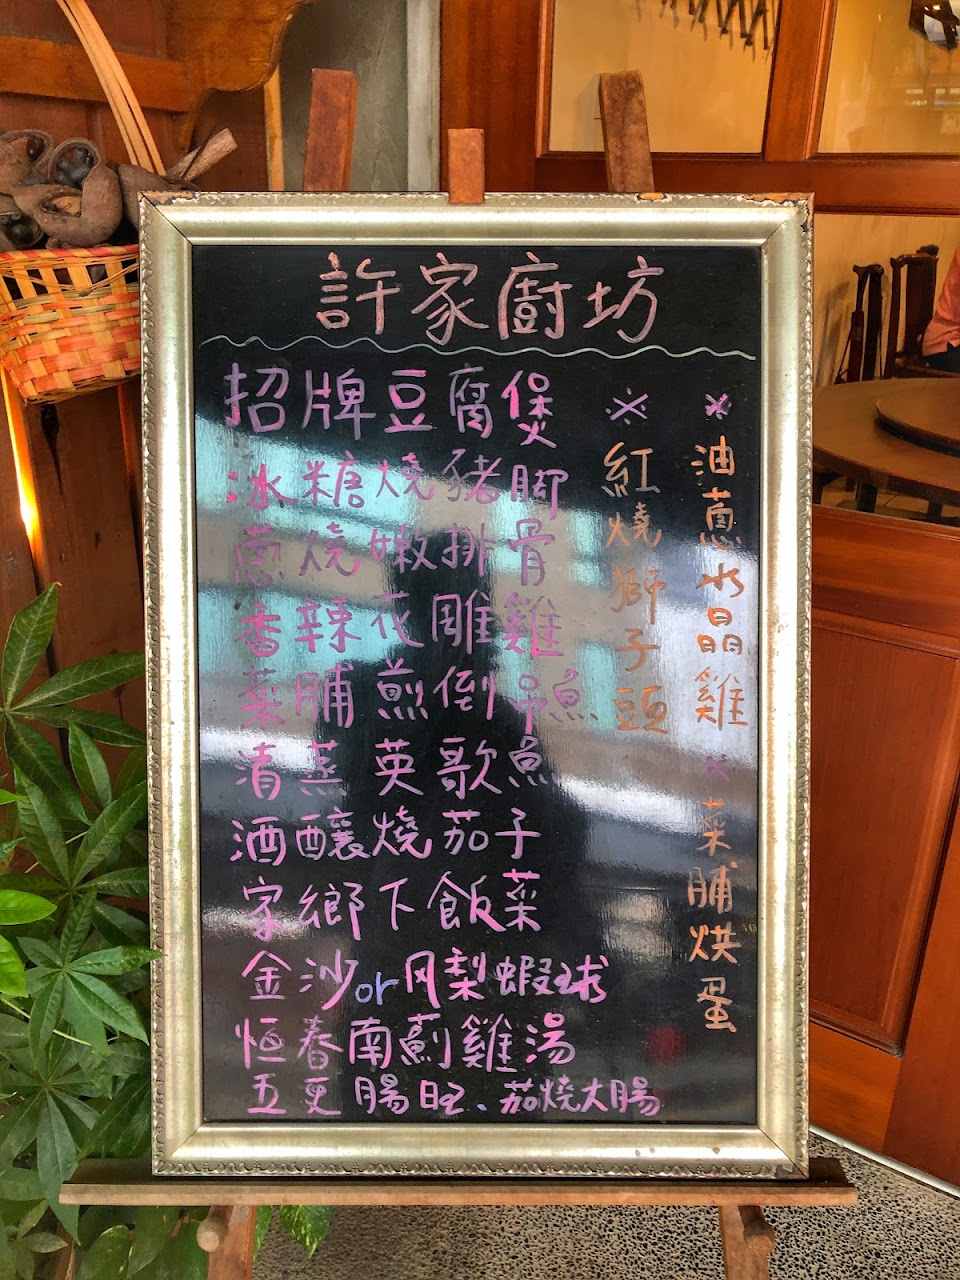 許家廚坊
招牌豆腐煲
冰糖燒豬腳
蔥燒嫩排骨
香辣花雕雞
菜脯煎倒吊魚
清蒸英歌魚
酒釀燒茄子
家鄉下飯菜
金沙or凤梨蝦球
恒春南薊雞湯
五更腸旺、茄燒大腸
※紅燒獅子頭
※油蔥水晶雞
※菜脯烘蛋